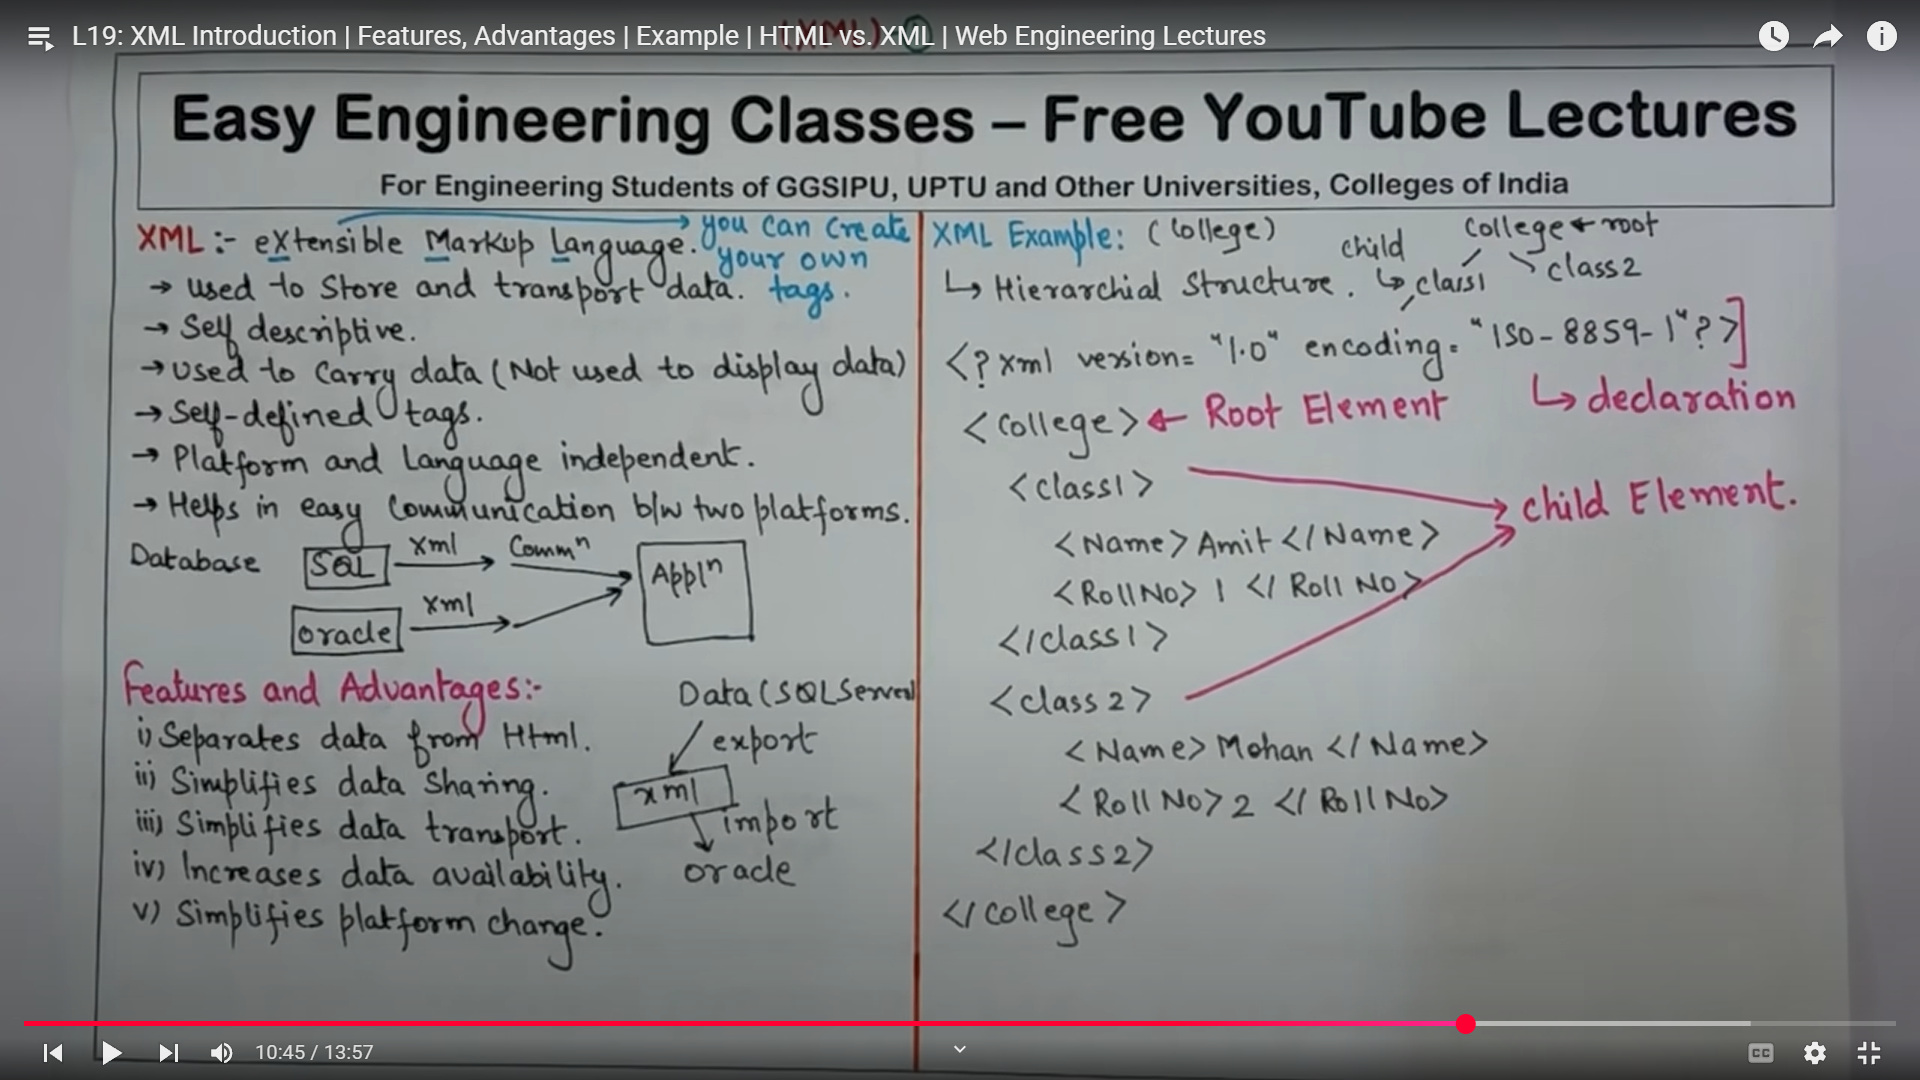 L19: XML Introduction | Features, Advantages | Example | HTML vs. XML | Web Engineering Lectures
Easy Engineering Classes – Free YouTube Lectures
For Engineering Students of GGSIPU, UPTU and Other Universities, Colleges of India
XML :- eXtensible Markup Language.
you can create
your own
tags.
→ used to store and transport data.
→ Self descriptive.
→ used to carry data (Not used to display data)
→ Self-defined tags.
→ Platform and Language independent.
→ Helps in easy Communication b/w two platforms.
Database
SQL
xml
Commⁿ
Applⁿ
oracle
xml
Features and Advantages:-
i) Separates data from Html.
ii) Simplifies data sharing.
iii) Simplifies data transport.
iv) Increases data availability.
v) Simplifies platform change.
Data (SQL Server)
export
xml
import
oracle
XML Example: (College)
College ← root
child
class1
class2
↳ Hierarchial Structure.
<? xml version= "1.0" encoding= "ISO-8859-1" ?>
↳ declaration
<College> ← Root Element
<class1>
child Element.
<Name> Amit </Name>
<RollNo> 1 </Roll No>
</class1>
<class2>
<Name> Mohan </Name>
<RollNo> 2 </RollNo>
</class2>
</College>
10:45 / 13:57
CC